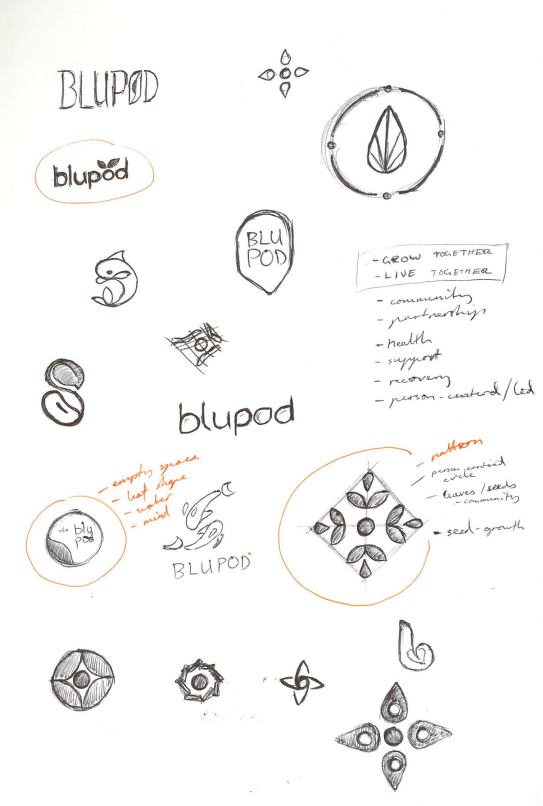 BLUPOD
blupod
BLU
POD
- GROW TOGETHER
- LIVE TOGETHER
- community
- partnerships
- health
- support
- recovery
- person-centered/led
blupod
- empty space
- leaf shape
- water
- mind
the blu
pod
BLUPOD
- pattern
- person centred
circle
- leaves/seeds
- community
- seed-growth
b